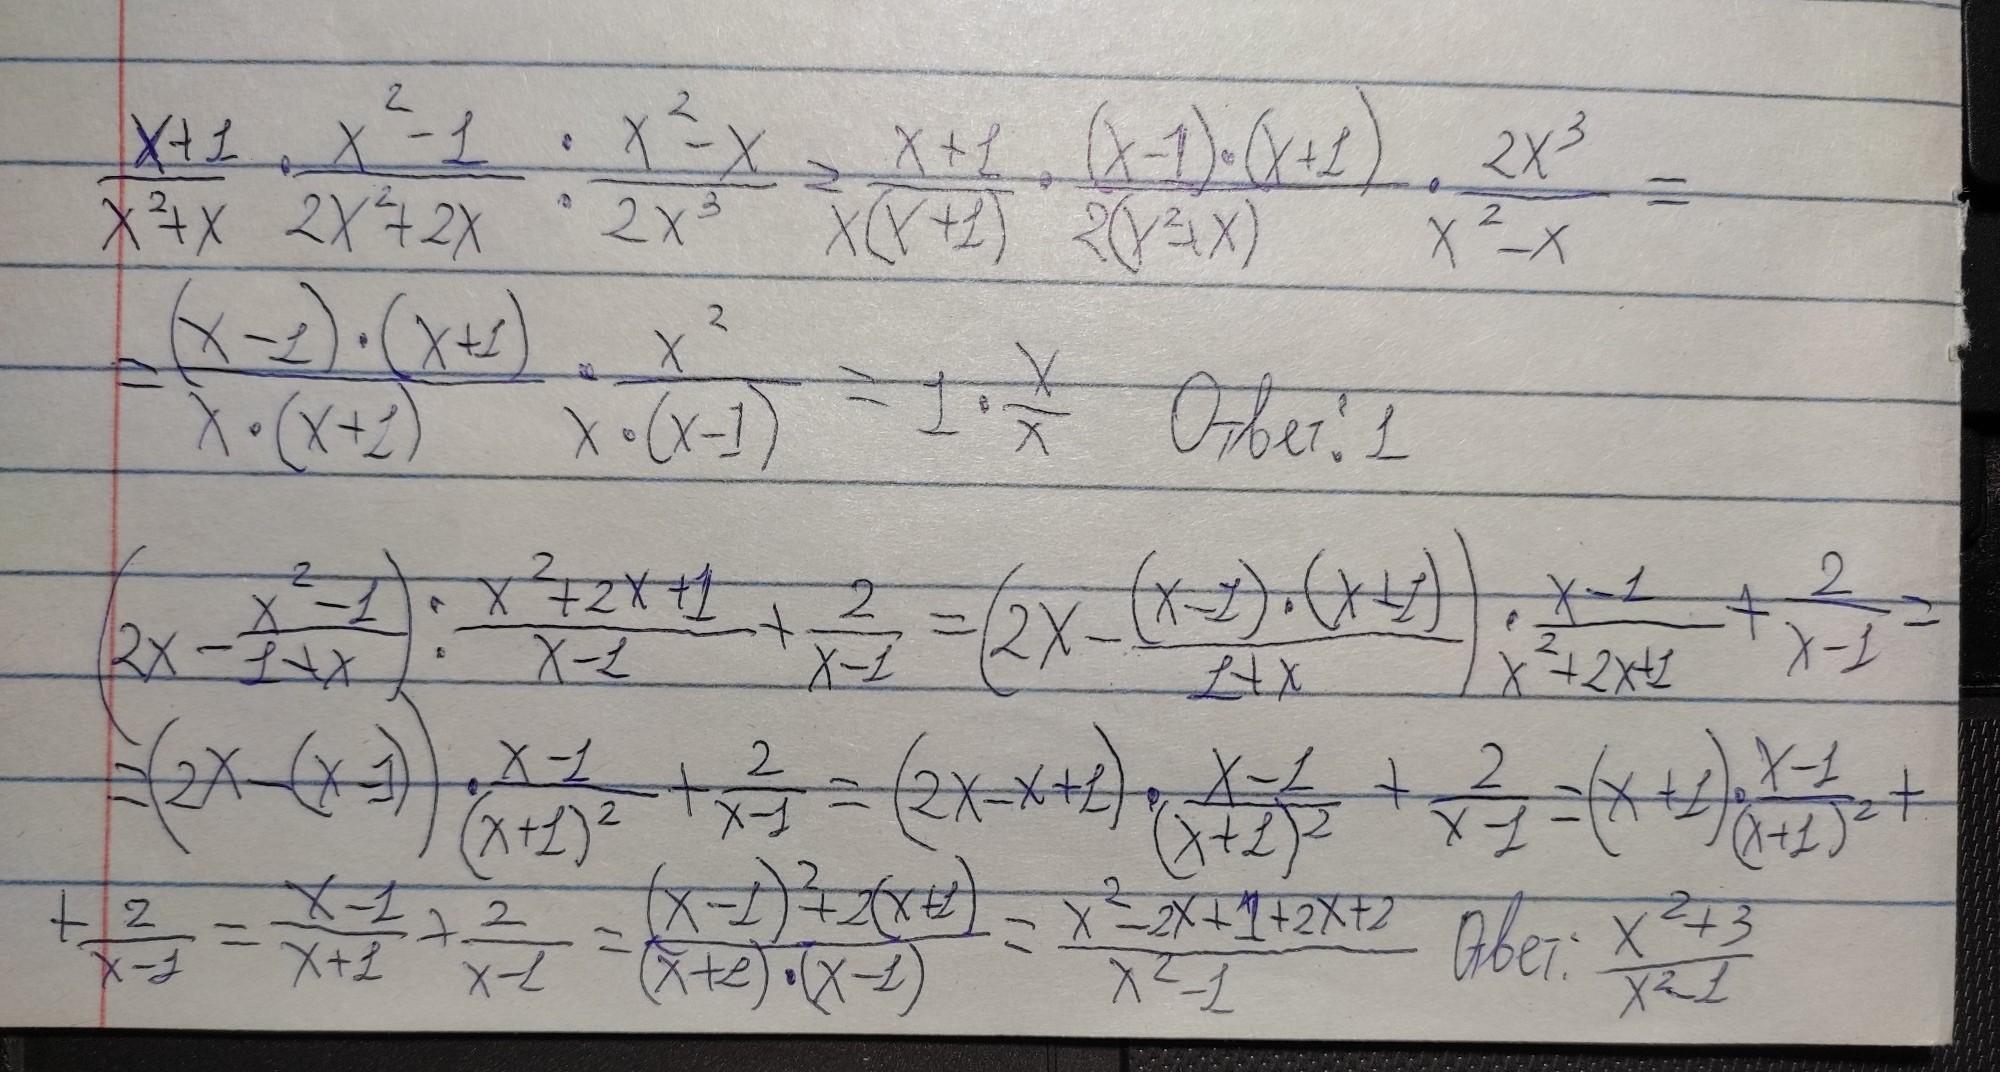 (x+1)/(x²+x) · (x²-1)/(2x²+2x) : (x²-x)/(2x³) = (x+1)/(x(x+1)) · ((x-1)·(x+1))/(2(x²+x)) · (2x³)/(x²-x) =
= ((x-1)·(x+1))/(x·(x+1)) · x²/(x·(x-1)) = 1 · x/x Ответ: 1
(2x - (x²-1)/(1+x)) : (x²+2x+1)/(x-1) + 2/(x-1) = (2x - ((x-1)·(x+1))/(1+x)) · (x-1)/(x²+2x+1) + 2/(x-1) =
= (2x-(x-1)) · (x-1)/(x+1)² + 2/(x-1) = (2x-x+1) · (x-1)/(x+1)² + 2/(x-1) = (x+1) · (x-1)/(x+1)² +
+ 2/(x-1) = (x-1)/(x+1) + 2/(x-1) = ((x-1)²+2(x+1))/((x+1)·(x-1)) = (x²-2x+1+2x+2)/(x²-1) Ответ: (x²+3)/(x²-1)